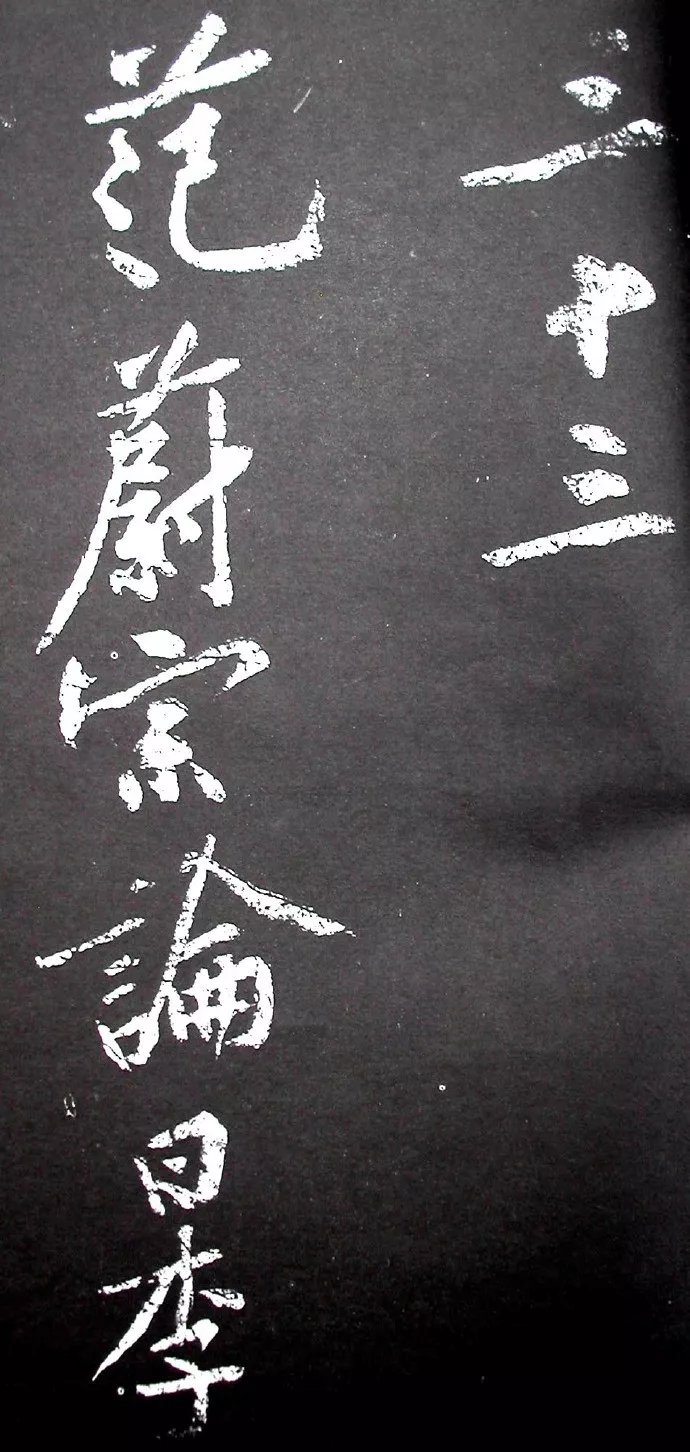 二十三
范蔚宗論曰李